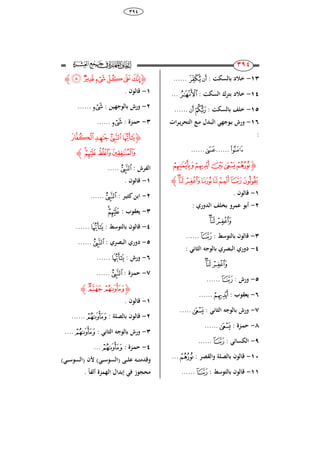 ٣٩٤
٣٩٤
١٣- خلاد بالسكت : أَن يُكَفِّرَ ......
١٤- خلاد بترك السكت : ٱلْأَنْهَـٰرُ ...
١٥- خلف بالسكت : رَبُّكُمْ أَن ......
١٦- ورش بوجهي البدل مع التحريرات :
ءَامَنُوا۟ ...... عَسَىٰ ......
﴿ نُورُهُمْ يَسْعَىٰ بَيْنَ أَيْدِيهِمْ وَبِأَيْمَـٰنِهِمْ يَقُولُونَ رَبَّنَآ أَتْمِمْ لَنَا نُورَنَا وَٱغْفِرْ لَنَآ ﴾
١- قالون .
٢- أبو عمرو بخلف الدوري :
وَٱغْفِرْ لَنَآ
٣- قالون بالتوسط : رَبَّنَآ ......
٤- دوري البصري بالوجه الثاني :
وَٱغْفِرْ لَنَآ
٥- ورش : رَبَّنَآ ......
٦- يعقوب : أَيْدِيهِمْ ......
٧- ورش بالوجه الثاني : يَسْعَىٰ .....
٨- حمزة : يَسْعَىٰ ......
٩- الكسائي : رَبَّنَآ ......
١٠- قالون بالصلة والقصر : نُورُهُمْ ...
١١- قالون بالتوسط : رَبَّنَآ ......
﴿ إِنَّكَ عَلَىٰ كُلِّ شَىْءٍ قَدِيرٌ ﴾
١- قالون .
٢- ورش بالوجهين : شَىْءٍ ......
٣- حمزة : شَىْءٍ ......
﴿ يَـٰٓأَيُّهَا ٱلنَّبِىُّ جَـٰهِدِ ٱلْكُفَّارَ وَٱلْمُنَـٰفِقِينَ وَٱغْلُظْ عَلَيْهِمْ ﴾
الفرش : ٱلنَّبِىُّ .....
١- قالون .
٢- ابن كثير : ٱلنَّبِىُّ ......
٣- يعقوب : عَلَيْهِمْ ......
٤- قالون بالتوسط : يَـٰٓأَيُّهَا ......
٥- دوري البصري : ٱلنَّبِىُّ ......
٦- ورش : يَـٰٓأَيُّهَا ......
٧- حمزة : ٱلنَّبِىُّ ......
﴿ وَمَأْوَىٰهُمْ جَهَنَّمُ ﴾
١- قالون .
٢- قالون بالصلة : وَمَأْوَىٰهُمْ ......
٣- ورش بالوجه الثاني : وَمَأْوَىٰهُمْ ....
٤- حمزة : وَمَأْوَىٰهُمْ ...
وقدمته على (السوسي) لأن (السوسي)
محجوز في إبدال الهمزة ألفاً .